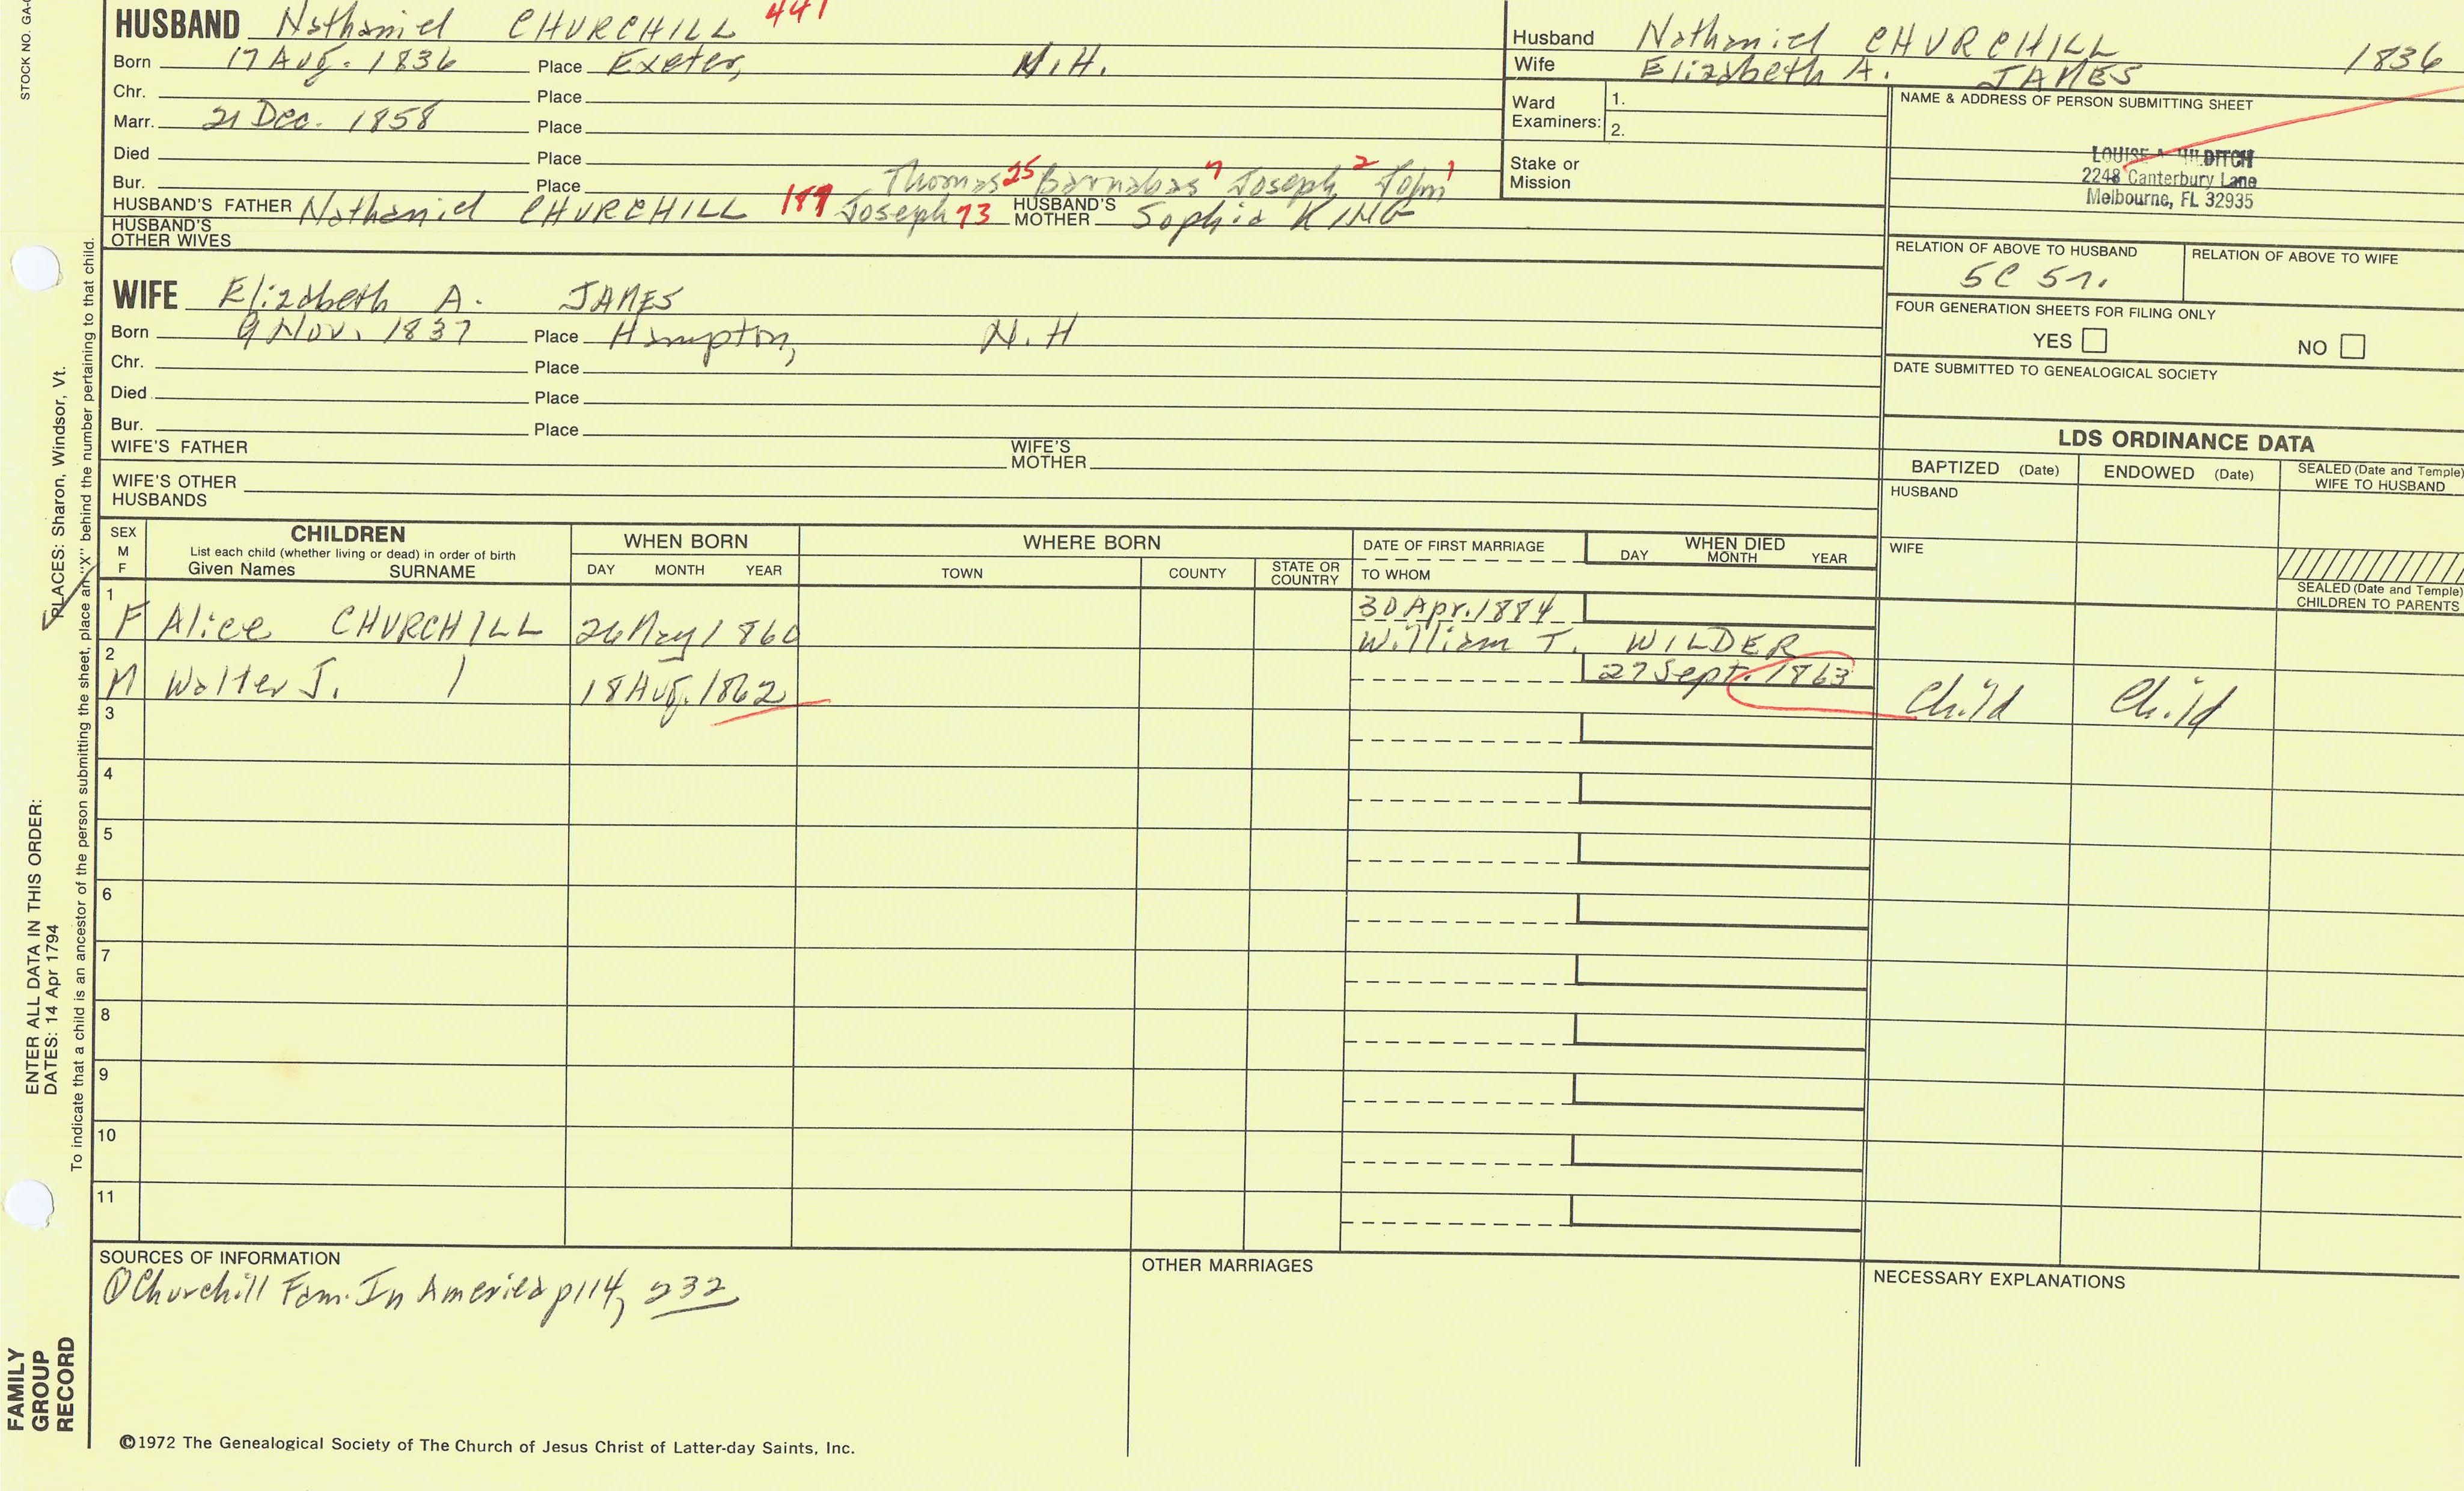 STOCK NO. GA-
HUSBAND Nathaniel CHURCHILL 441
Born 17 Aug. 1836 Place Exeter, N.H.
Chr. Place
Marr. 21 Dec. 1858 Place
Died Place
Bur. Place
Thomas 25 Barnabas 7 Joseph 2 John 1
HUSBAND'S FATHER Nathaniel CHURCHILL 189 Joseph 73 HUSBAND'S MOTHER Sophia KING
HUSBAND'S OTHER WIVES
WIFE Elizabeth A. JAMES
Born 9 Nov. 1837 Place Hampton, N.H
Chr. Place
Died Place
Bur. Place
WIFE'S FATHER WIFE'S MOTHER
WIFE'S OTHER HUSBANDS
Husband Nathaniel CHURCHILL 1836
Wife Elizabeth A. JAMES
Ward Examiners: 1.
2.
Stake or Mission
NAME & ADDRESS OF PERSON SUBMITTING SHEET
LOUISE A HILDITCH
2248 Canterbury Lane
Melbourne, FL 32935
RELATION OF ABOVE TO HUSBAND RELATION OF ABOVE TO WIFE
5C
FOUR GENERATION SHEETS FOR FILING ONLY
YES NO
DATE SUBMITTED TO GENEALOGICAL SOCIETY
LDS ORDINANCE DATA
BAPTIZED (Date) ENDOWED (Date) SEALED (Date and Temple) WIFE TO HUSBAND
HUSBAND
WIFE
SEALED (Date and Temple) CHILDREN TO PARENTS
SEX M F CHILDREN WHEN BORN WHERE BORN DATE OF FIRST MARRIAGE WHEN DIED
List each child (whether living or dead) in order of birth
Given Names SURNAME DAY MONTH YEAR TOWN COUNTY STATE OR COUNTRY TO WHOM DAY MONTH YEAR
1 F Alice CHURCHILL 26 May 1860 30 Apr. 1884
William T. WILDER
2 M Walter J. 18 Aug. 1862 27 Sept. 1863 Child Child
3
4
5
6
7
8
9
10
11
SOURCES OF INFORMATION
① Churchill Fam. In America p114, 232
OTHER MARRIAGES
NECESSARY EXPLANATIONS
©1972 The Genealogical Society of The Church of Jesus Christ of Latter-day Saints, Inc.
FAMILY GROUP RECORD
ENTER ALL DATA IN THIS ORDER:
DATES: 14 Apr 1794
PLACES: Sharon, Windsor, Vt.
To indicate that a child is an ancestor of the person submitting the sheet, place an "X" behind the number pertaining to that child.